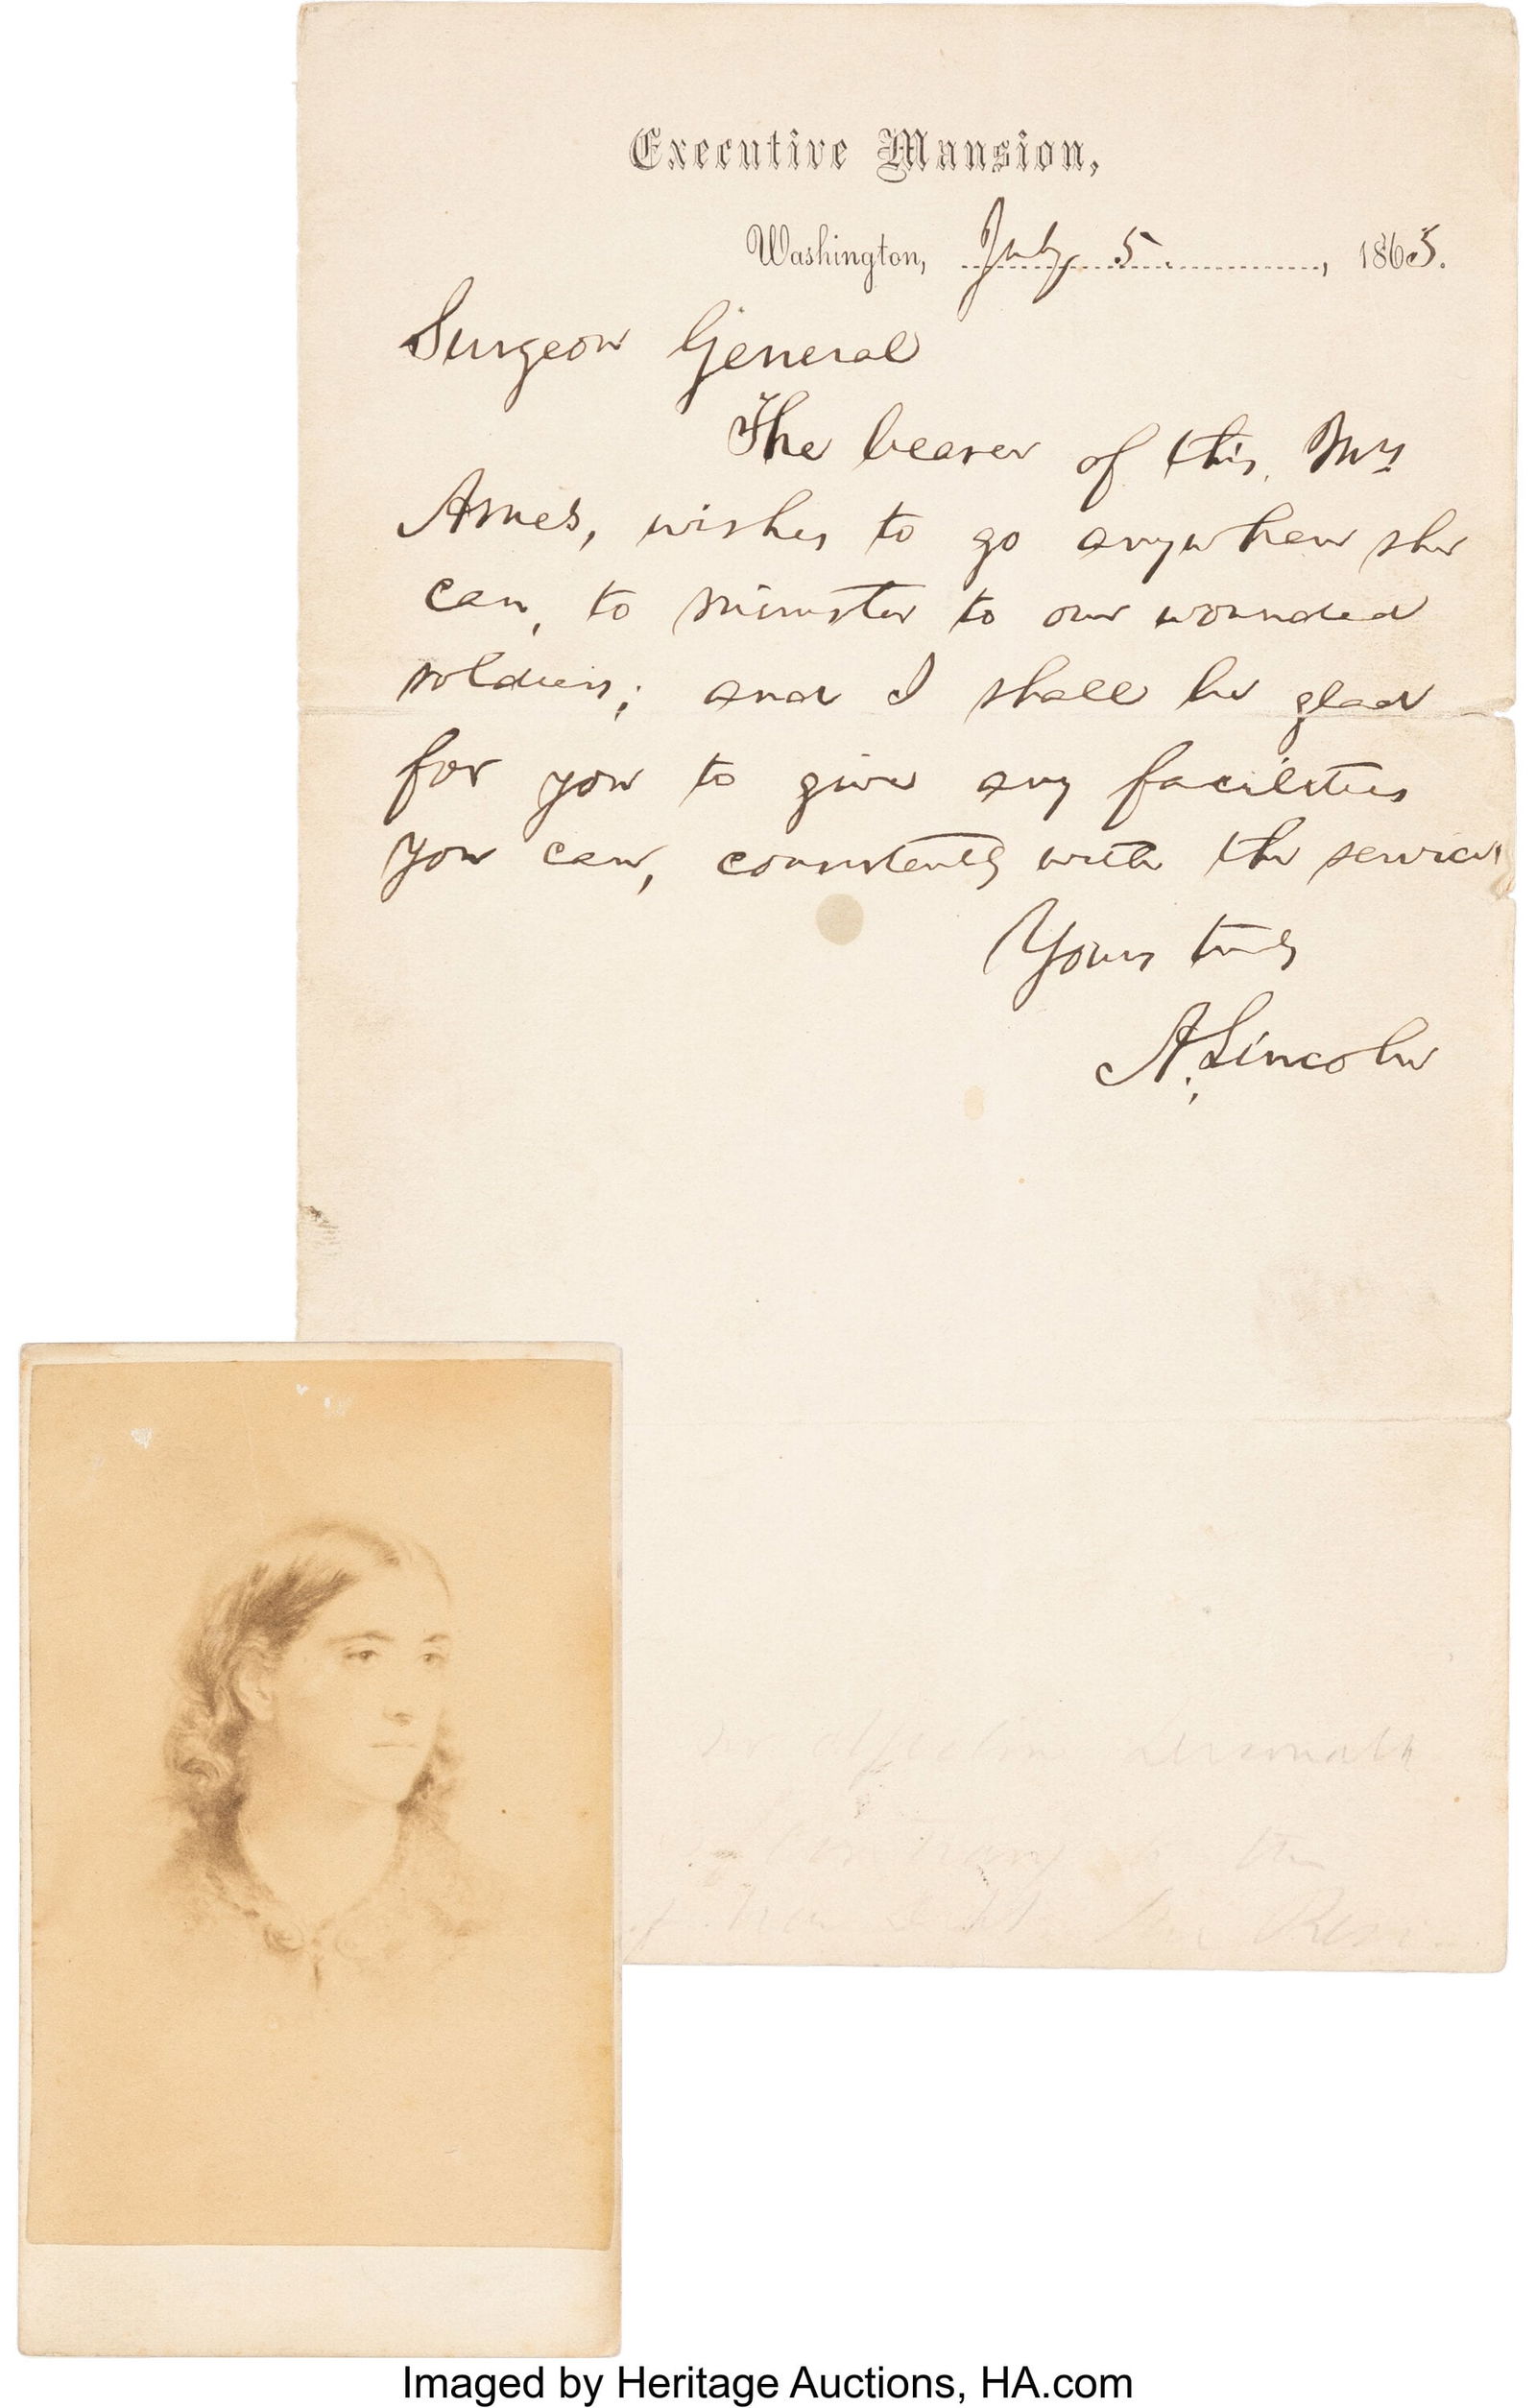 Executive Mansion,
Washington, July 5, 1863.
Surgeon General
The bearer of this, Mrs
Ames, wishes to go anywhere she
can, to minister to our wounded
soldiers; and I shall be glad
for you to give any facilities
you can, consistently with the service,
Yours truly
A. Lincoln
contrary to the
Imaged by Heritage Auctions, HA.com